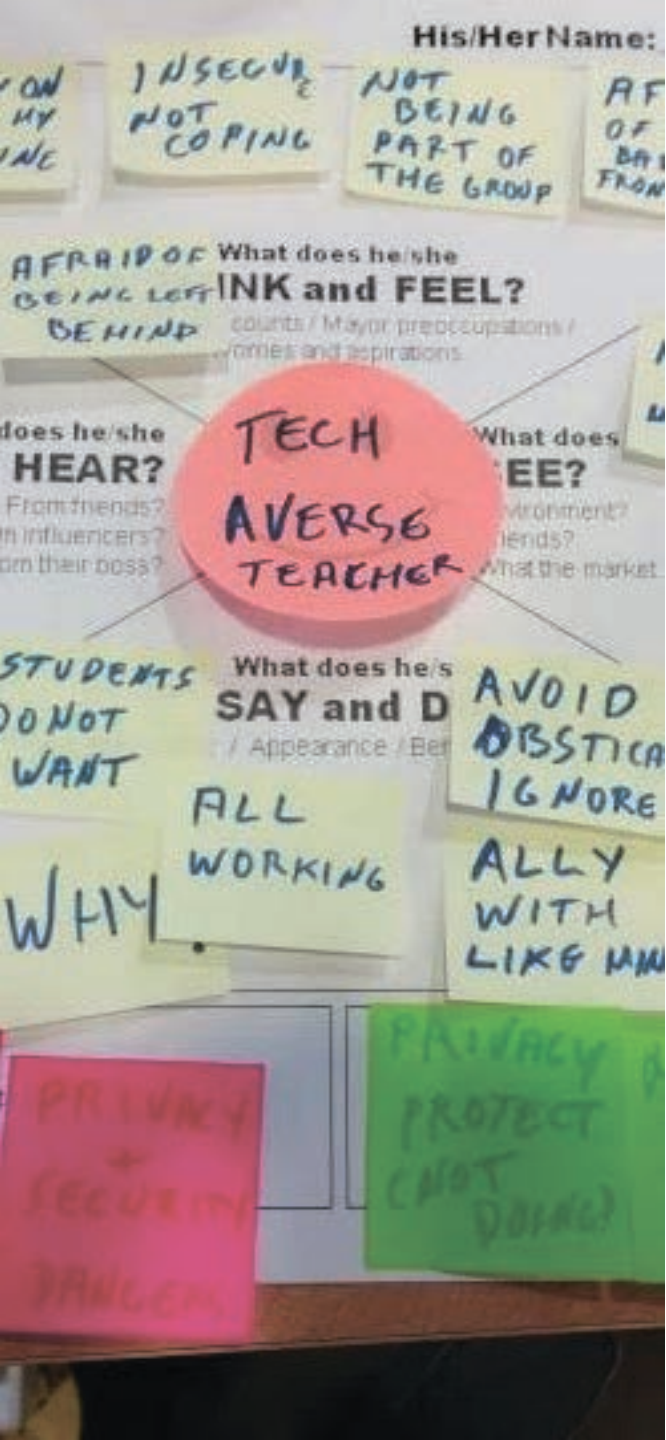 His/Her Name:
ON
MY
INSECURE
NOT
COPING
NOT
BEING
PART OF
THE GROUP
AF
OF
BA
FROM
AFRAID OF
BEING LEFT
BEHIND
What does he/she
INK and FEEL?
counts / Mayor preoccupations /
worries and aspirations
does he/she
HEAR?
From friends?
influencers?
om their boss?
TECH
AVERSE
TEACHER
What does
EE?
vironment?
iends?
What the market
STUDENTS
DO NOT
WANT
What does he/s
SAY and D
/ Appearance / Beh
AVOID
OBSTICA
IGNORE
ALL
WORKING
WHY
ALLY
WITH
LIKE MIN
PRIVACY
+
SECURITY
DANGER
PRIVACY
PROTECT
(NOT
DOING?